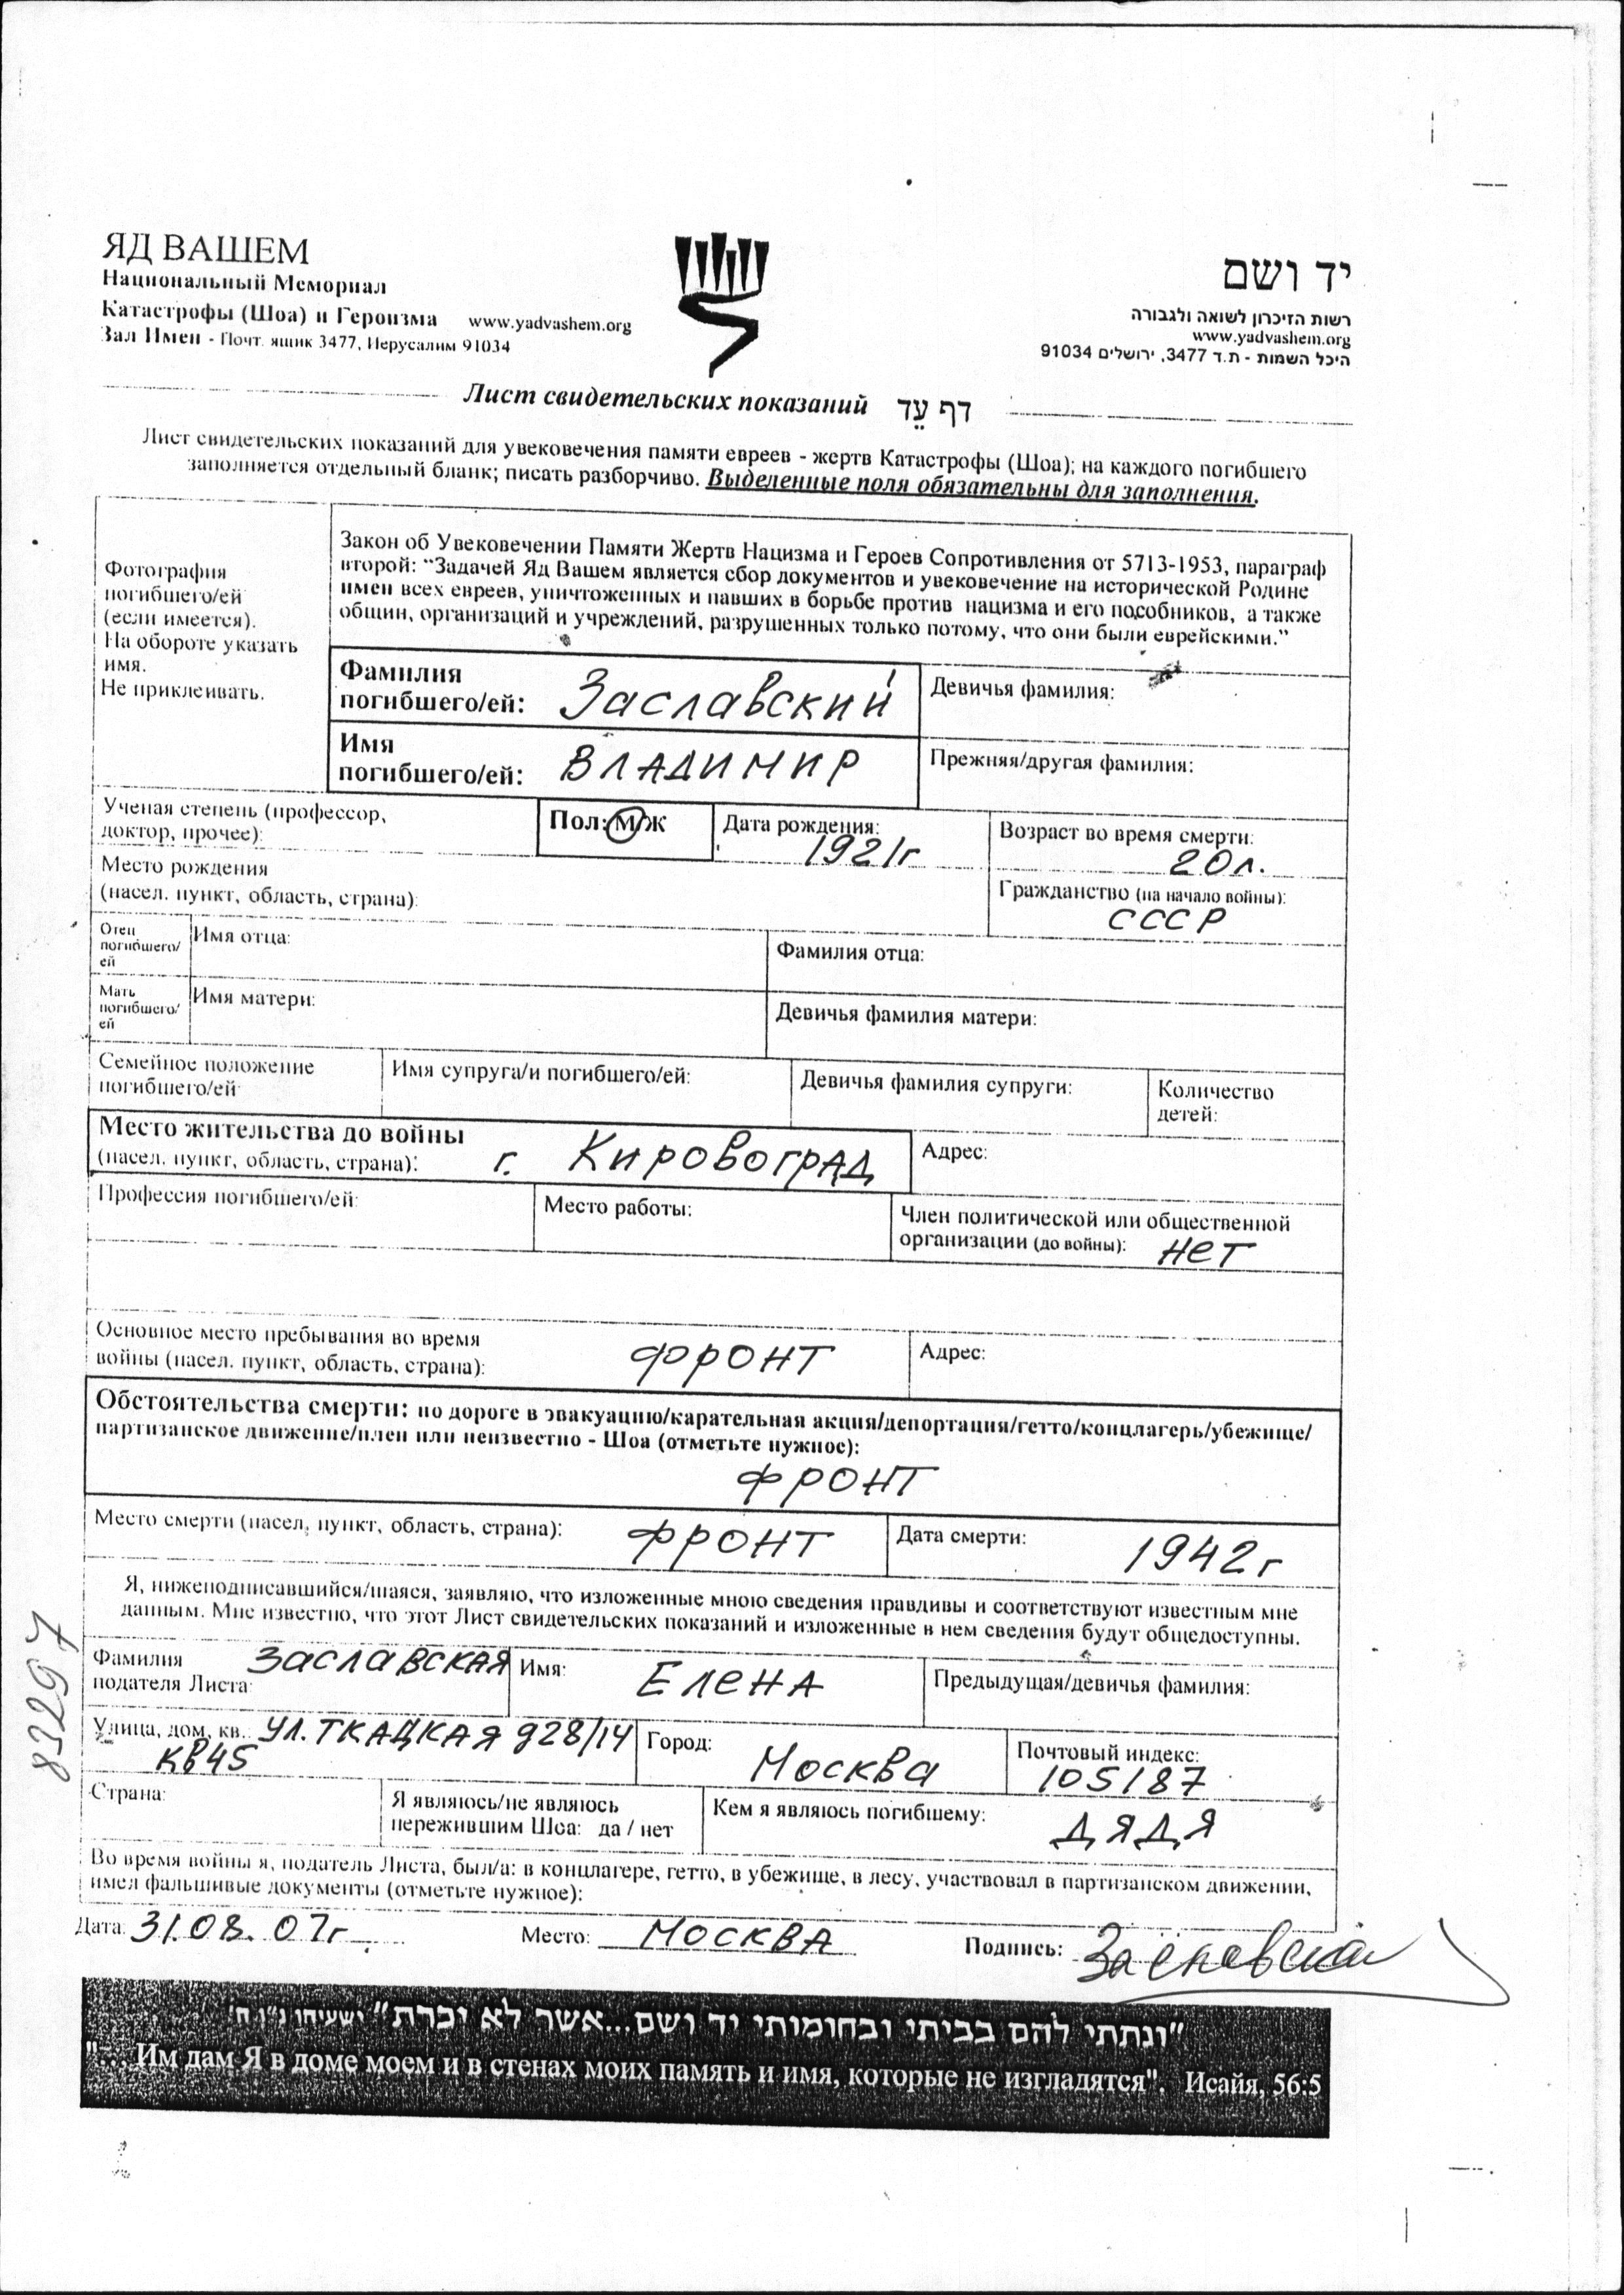 ЯД ВАШЕМ
Национальный Мемориал
Катастрофы (Шоа) и Героизма www.yadvashem.org
Зал Имен - Почт. ящик 3477, Иерусалим 91034
יד ושם
רשות הזיכרון לשואה ולגבורה
www.yadvashem.org
היכל השמות - ת.ד 3477, ירושלים 91034
Лист свидетельских показаний דף עֵד
Лист свидетельских показаний для увековечения памяти евреев - жертв Катастрофы (Шоа); на каждого погибшего
заполняется отдельный бланк; писать разборчиво. Выделенные поля обязательны для заполнения.
Фотография
погибшего/ей
(если имеется).
На обороте указать
имя.
Не приклеивать.
Закон об Увековечении Памяти Жертв Нацизма и Героев Сопротивления от 5713-1953, параграф
второй: "Задачей Яд Вашем является сбор документов и увековечение на исторической Родине
имен всех евреев, уничтоженных и павших в борьбе против нацизма и его пособников, а также
общин, организаций и учреждений, разрушенных только потому, что они были еврейскими."
Фамилия
погибшего/ей: Заславский
Девичья фамилия:
Имя
погибшего/ей: ВЛАДИМИР
Прежняя/другая фамилия:
Ученая степень (профессор,
доктор, прочее):
Пол: М/Ж
Дата рождения:
1921г
Возраст во время смерти:
20л.
Место рождения
(насел. пункт, область, страна):
Гражданство (на начало войны):
СССР
Отец
погибшего/
ей
Имя отца:
Фамилия отца:
Мать
погибшего/
ей
Имя матери:
Девичья фамилия матери:
Семейное положение
погибшего/ей
Имя супруга/и погибшего/ей:
Девичья фамилия супруги:
Количество
детей:
Место жительства до войны
(насел. пункт, область, страна): г. Кировоград
Адрес:
Профессия погибшего/ей:
Место работы:
Член политической или общественной
организации (до войны): нет
Основное место пребывания во время
войны (насел. пункт, область, страна): фронт
Адрес:
Обстоятельства смерти: по дороге в эвакуацию/карательная акция/депортация/гетто/концлагерь/убежище/
партизанское движение/плен или неизвестно - Шоа (отметьте нужное):
фронт
Место смерти (насел. пункт, область, страна): фронт
Дата смерти: 1942г
Я, нижеподписавшийся/шаяся, заявляю, что изложенные мною сведения правдивы и соответствуют известным мне
данным. Мне известно, что этот Лист свидетельских показаний и изложенные в нем сведения будут общедоступны.
83297
Фамилия
подателя Листа: Заславская
Имя: Елена
Предыдущая/девичья фамилия:
Улица, дом, кв.: ул. Ткацкая д28/14
кв45
Город: Москва
Почтовый индекс:
105187
Страна:
Я являюсь/не являюсь
пережившим Шоа: да / нет
Кем я являюсь погибшему: ДЯДЯ
Во время войны я, податель Листа, был/а: в концлагере, гетто, в убежище, в лесу, участвовал в партизанском движении,
имел фальшивые документы (отметьте нужное):
Дата: 31.08.07г. Место: Москва Подпись: Заславская
"ונתתי להם בביתי ובחומותי יד ושם...אשר לא יכרת" ישעיהו נ"ו ה'
"... Им дам Я в доме моем и в стенах моих память и имя, которые не изгладятся". Исайя, 56:5